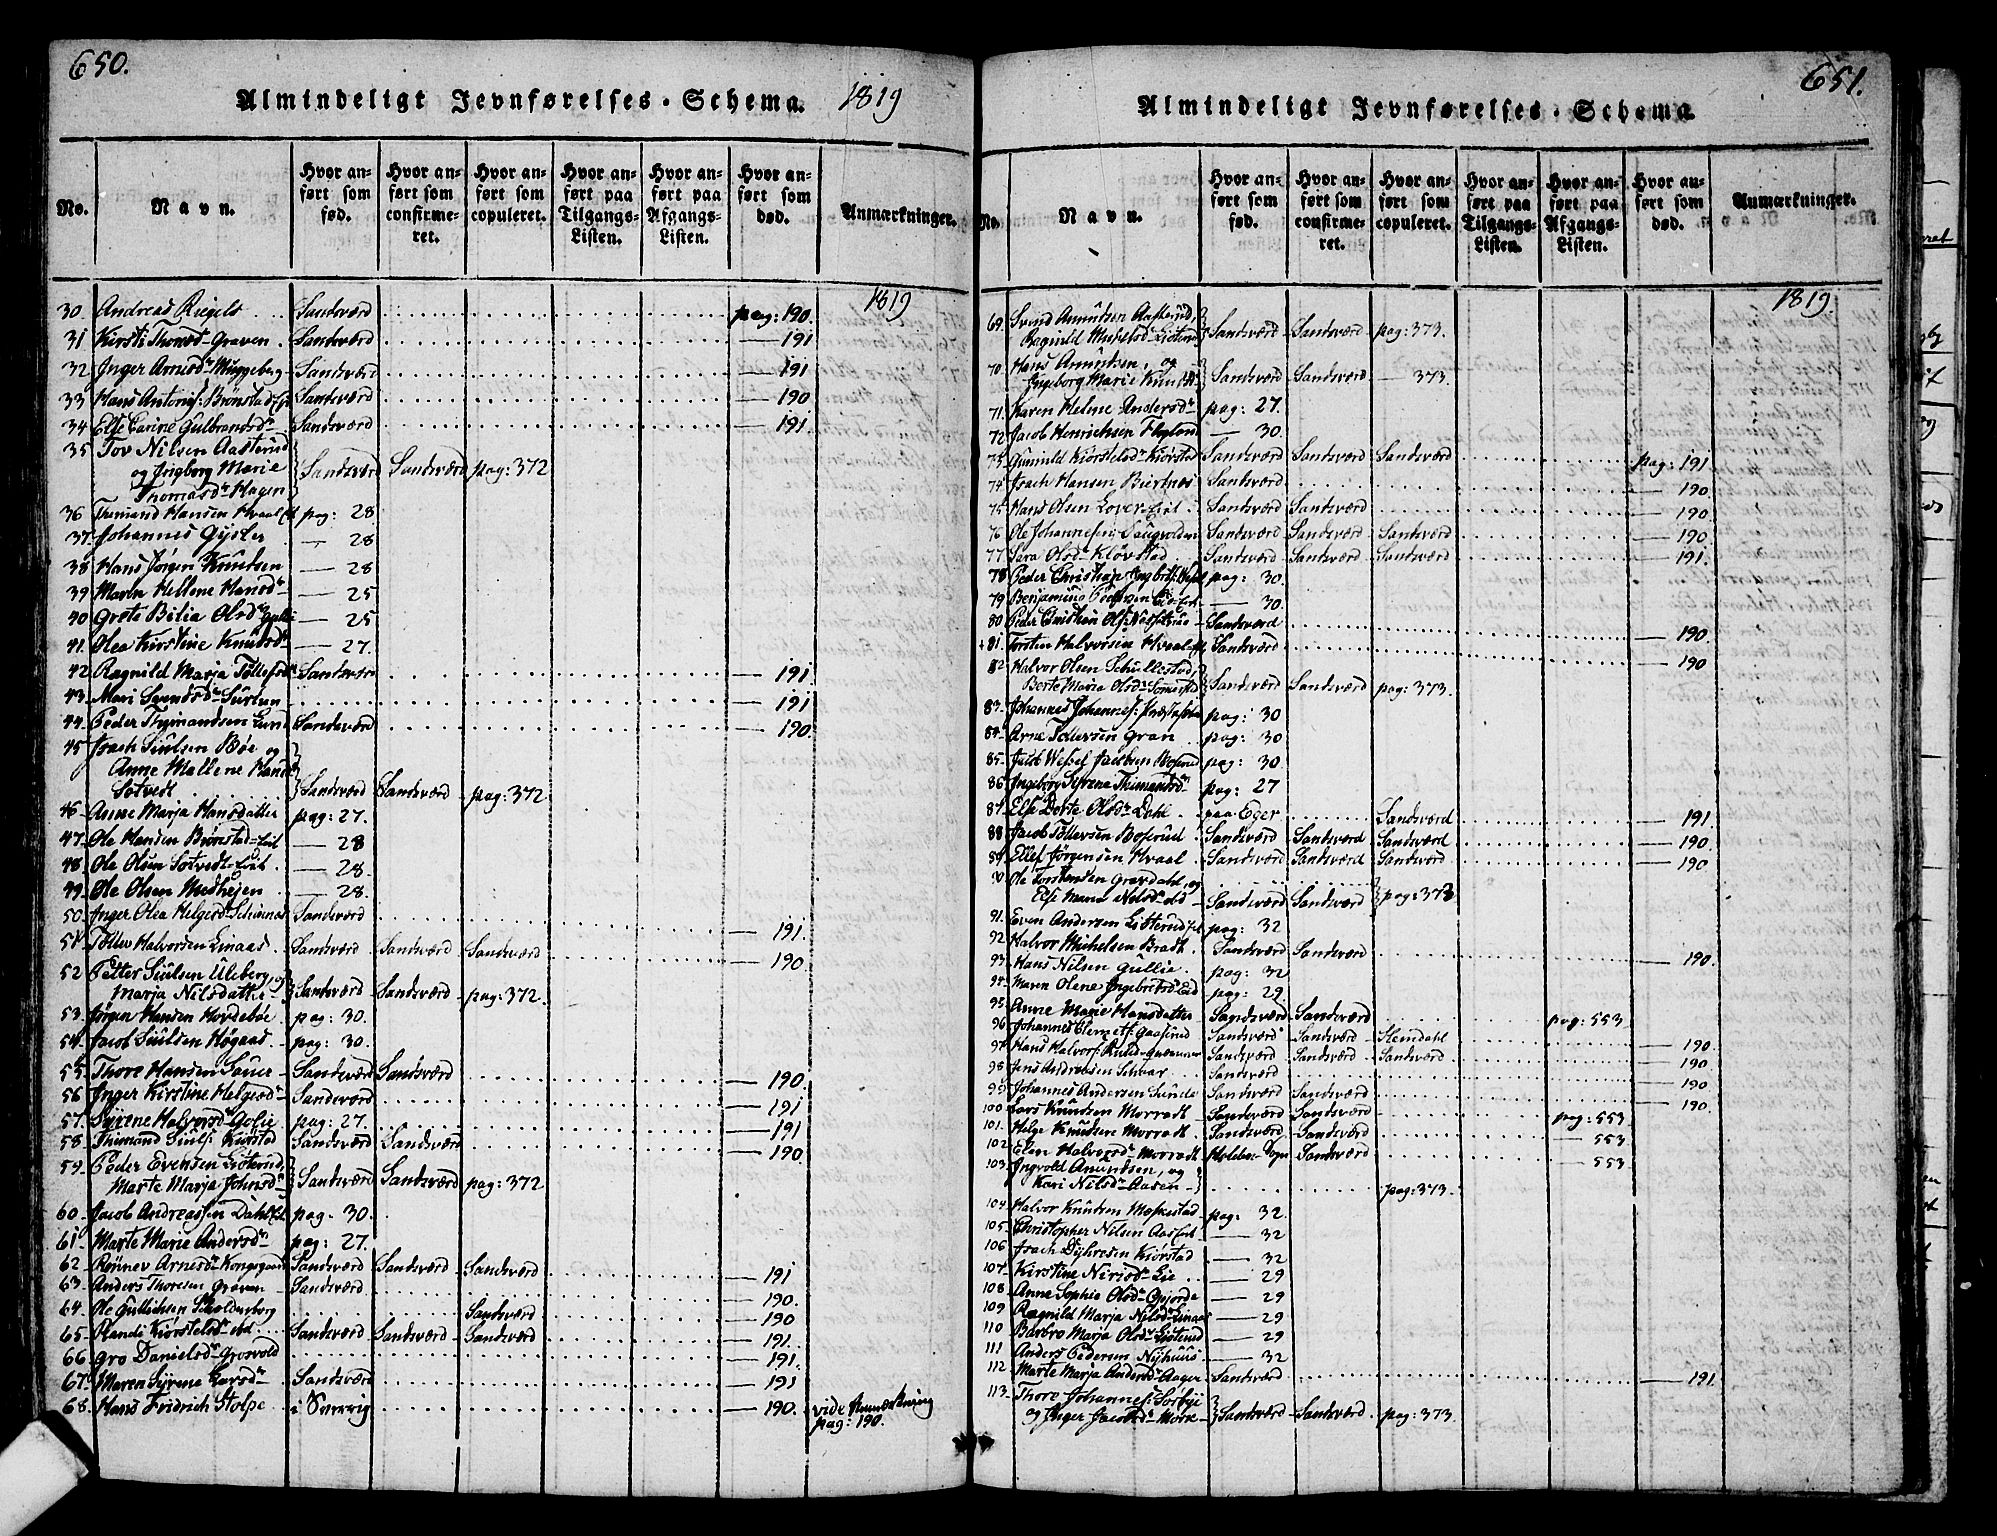 650.
Almindeligt Jevnførelses-Schema. 1819
No. Navn. Hvor anført som fød. Hvor anført som confirmeret. Hvor anført som copuleret. Hvor anført paa Tilgangs-Listen. Hvor anført paa Afgangs-Listen. Hvor anført som død. Anmærkninger.
1819
30. Andreas Riegels Sandsværd pag: 190.
31 Kirsti Thomsd Graven Sandsværd — 191
32 Inger Arnesd Muggeberg Sandsværd — 191
33 Hans Antonis: Brønstad Sandsværd — 190
34 Else Carine Gulbrandsd Sandsværd — 191
35 Tov Nilsen Aasterud
og Ingborg Marie Sandsværd Sandsværd pag: 372
Thomasd Hagen
36 Hansen Hvaal pag: 28
37. Johannes Gysler — 28
38 Hans Jørgen Knudsen — 28
39 Maren Hellene Hansd — 25
40 Grete Bilia Olsd — 25
41. Olea Kirstine Knudsd — 27.
42 Ragnild Marja Tollefsd Sandsværd — 191
43 Mari — 191
44 Peder Thymandsen Lund Sandsværd — 190.
45 Isach Siulsen Bøe og
Anne Mallene Hansd
Sotvedt Sandsværd Sandsværd pag: 372
46. Anne Marja Hansdatter pag: 27.
47. Ole Hansen Brønstad-Eid — 28
48. Ole Olsen Sotvedt-Eid — 28.
49. Ole Olsen Medhejen — 28.
50. Inger Olea Helgesd Sandsværd — 191.
51 Tollev Halvorsen Linaas Sandsværd Sandsværd Sandsværd — 190
52 Petter Siulsen Uleberg, og
Marja Nilsdatter Sandsværd Sandsværd pag: 372.
53. Jørgen Hansen Hovdeböe pag: 30.
54. Jacob Siulsen Høgaas pag: 30.
55. Thore Hansen Sauer Sandsværd Sandsværd — 190.
56 Inger Kirstine Helgesd Sandsværd — 191
57. Syrene Halvorsd Golie pag: 27. — 191
58. Thimand Siuls: Kiørstad Sandsværd Sandsværd — 190.
59. Peder Evensen Listerud,
Marte Marja Johnsd Sandsværd Sandsværd pag: 372
60. Jacob Andreassen Dahl pag. 30.
61. Marte Marie Andersd pag: 27.
62. Rønnev Arnesd Kongsgaard Sandsværd Sandsværd Sandsværd — 191
63. Anders Thoresen Graven Sandsværd — 190.
64. Ole Gullichsen Skolderborg Sandsværd — 190
65. Randi Kiørstelsd ibd Sandsværd Sandsværd Sandsværd — 191.
66. Gro Danielsd Grosvold — 191.
67. Maren Syrene Larsd Sandsværd — 191
68. Hans Fridrich Stolpe i Sverrig — 190. vide Anmærkning
pag: 190.
651.
Almindeligt Jevnførelses-Schema.
No. Navn. Hvor anført som fød. Hvor anført som confirmeret. Hvor anført som copuleret. Hvor anført paa Tilgangs-Listen. Hvor anført paa Afgangs-Listen. Hvor anført som død. Anmærkninger.
1819.
69. Svend Amundsen Aasterud,
Ragnild Michelsd Listerud Sandsværd Sandsværd pag: 373.
70. Hans Amundsen, og
Ingeborg Marie Knudsd Sandsværd Sandsværd — 373.
71. Karen Helene Andersd pag: 27.
72 Jacob Henrichsen — 30.
73. Gunnild Kiørstelsd Kiørstad Sandsværd Sandsværd Sandsværd pag: 191.
74 Isach Hansen Biertnes Sandsværd — 190.
75 Hans Olsen Lover-Eiet Sandsværd Sandsværd — 190.
76 Ole Johannesen Sandsværd Sandsværd Sandsværd — 190
77 Sara Olsd Kløvstad Sandsværd Sandsværd Sandsværd — 191.
78 Peder Christian Ingebrets: pag: 30.
79 Benjaminus Pedersen — 30.
80 Peder Christian Ols: Sandsværd — 190.
81. Torsten Halvorsen Hvaal Sandsværd — 190
82 Halvor Olsen Skullestad,
Berte Maria Olsd Somerstad Sandsværd Sandsværd pag: 373.
83. Johannes Johannes: pag: 30
84. Arne Tollevsen Gran pag: 30
85. Jacob Wessel Jacobsen Boserud pag: 30
86. Ingeborg Syrene Thimandsd pag: 27
87. Else Dorte Olsd Dahl paa Eger Sandsværd — 191.
88 Jacob Tollevsen Boserud Sandsværd Sandsværd Sandsværd — 190.
89. Ellef Jørgensen Hvaal Sandsværd Sandsværd Sandsværd — 190
90. Ole Torstensen Gravdahl, og
Else Marie Nilsd ibd Sandsværd Sandsværd pag: 373
91. Even Andersen Listerud pag: 32
92. Halvor Michelsen Bradt Sandsværd Sandsværd — 190.
93. Hans Nilsen Gullie pag: 32
94. Maren Olene Ingebretsd Eid pag: 29.
95. Anne Marie Hansdatter Sandsværd Sandsværd pag: 553
96 Johannes Clemets: Gaaserud Sandsværd Sandsværd Slemdahl — 190.
97 Hans Halvors: Sandsværd Sandsværd Sandsværd — 190
98 Jens Andreasen Schaar Sandsværd — 190
99 Johannes Andersen Lunde Sandsværd Sandsværd — 190.
100 Lars Knudsen Morradt Sandsværd Sandsværd pag: 553
101. Helge Knudsen Morradt Sandsværd Sandsværd — 553
102. Elen Halvorsd Morradt Sogn Sandsværd — 553
103. Ingvold Amundsen, og
Kari Nilsd Aasen pag: 373.
104. Halvor Knudsen pag: 32.
105. Christopher Nilsen — 32
106 Isach Kiørstad — 32
107. Kirstine Lie — 29
108. Anne Sophie Olsd — 29
109 Ragnild Marja Nilsd Linaas — 29
110 Barbro Marja Olsd Listerud — 29
111 Anders Pedersen Nyhuus — 32
112 Marte Marja Andersd Aager Sandsværd — 191.
113. Thore Johannes:
og Inger Jacobsd Sandsværd Sandsværd pag: 373.